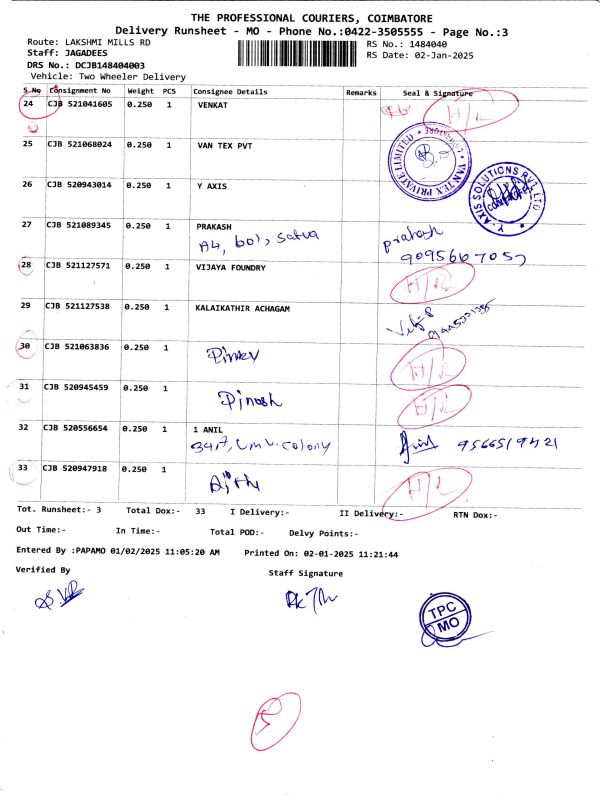 THE PROFESSIONAL COURIERS, COIMBATORE
Delivery Runsheet - MO - Phone No.:0422-3505555 - Page No.:3
Route: LAKSHMI MILLS RD
RS No.: 1484040
Staff: JAGADEES
RS Date: 02-Jan-2025
DRS No.: DCJB148404003
Vehicle: Two Wheeler Delivery
S No Consignment No Weight PCS Consignee Details Remarks Seal & Signature
24 CJB 521041605 0.250 1 VENKAT H/L
25 CJB 521068024 0.250 1 VAN TEX PVT
VAN TEX PRIVATE LIMITED * COIMBATORE *
26 CJB 520943014 0.250 1 Y AXIS
Y-AXIS SOLUTIONS PVT. LTD
27 CJB 521089345 0.250 1 PRAKASH
prakash
28 CJB 521127571 0.250 1 VIJAYA FOUNDRY H/L
29 CJB 521127538 0.250 1 KALAIKATHIR ACHAGAM
30 CJB 521063836 0.250 1 H/L
31 CJB 520945459 0.250 1 Dinesh H/L
32 CJB 520556654 0.250 1 1 ANIL
colony
33 CJB 520947918 0.250 1 Ajith H/L
Tot. Runsheet:- 3 Total Dox:- 33 I Delivery:- II Delivery:- RTN Dox:-
Out Time:- In Time:- Total POD:- Delvy Points:-
Entered By :PAPAMO 01/02/2025 11:05:20 AM Printed On: 02-01-2025 11:21:44
Verified By Staff Signature
TPC
MO
5